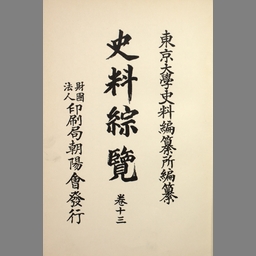 東京大學史料編纂所編纂
史料綜覽
卷十三
財團法人印刷局朝陽會發行